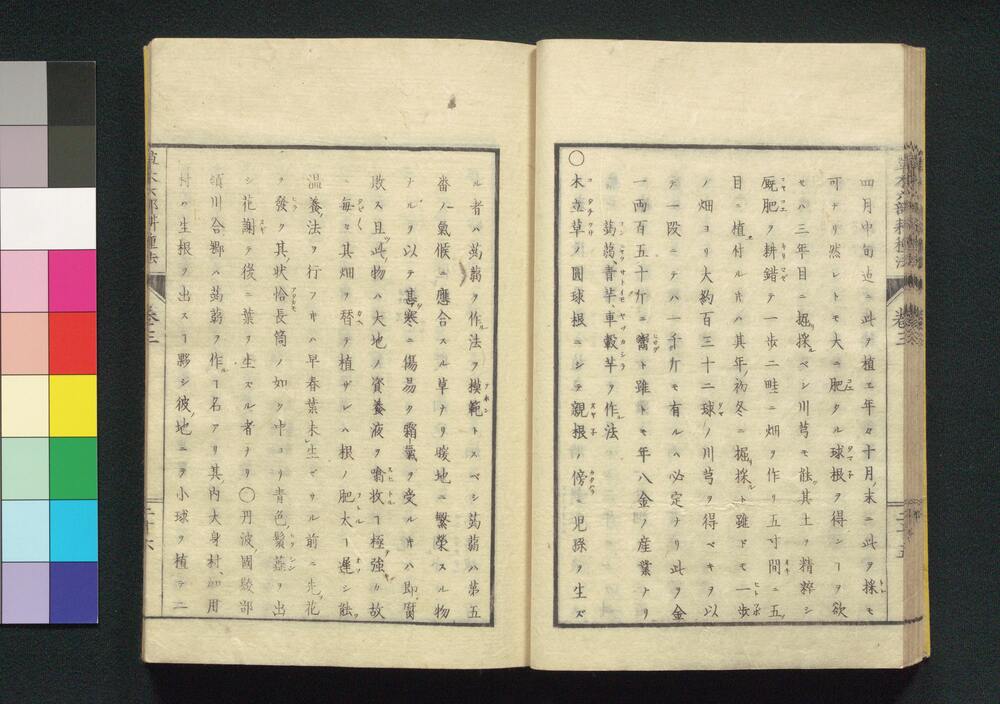 四月中旬迄ニ此ヲ植エ年々十月末ニ此ヲ採モ
可ナリ然レトモ大ニ肥タル球根ヲ得ンーヲ欲
セハ三年目ニ掘採ベシ川芎モ能其土ヲ精粹シ
厩肥ヲ耕錯テ一歩二畦ニ畑ヲ作リ五寸間ニ五
目ニ植付ルハ其年初冬ニ掘採ト雖ドモ一歩
ノ畑ヨリ大約百三十二球ノ川芎ヲ得ベキヲ以
テ一段ニテハ一千斤モ有ルハ必定ナリ此ヲ金
一両百五十斤ニ鬻ト雖トモ年八金ノ産業ナリ
蒟蒻青芋車轂芋ヲ作法
○木立草ノ圓球根ニシテ親根ノ傍ニ児孫ヲ生ズ
草木六部耕種法 巻三 二十五
ル者ハ蒟蒻ヲ作法ヲ模範トスベシ蒟蒻ハ第五
番ノ氣候ニ應合スル草ナリ暖地ニ繁榮スル物
ナルヲ以テ甚寒ニ傷易ク霜氣ヲ受ルハ即腐
敗ス且此物ハ大地ノ資養液ヲ噏收ー極強カ故
ニ毎モ其畑ヲ替テ植ザレハ根ノ肥太ー遅シ能
温養法ヲ行フハ早春葉未生ゼサル前ニ先花
ヲ發ク其状恰長筒ノ如ク中ヨリ青色鬚蘂ヲ出
シ花謝テ後ニ葉ヲ生ズル者ナリ○丹波國綾部
領川合郷ハ蒟蒻ヲ作ー名アリ其内大身村
村ハ生根ヲ出スー夥シ彼地ニテ小球ヲ植テ二
草木六部耕種法 巻三 二十六